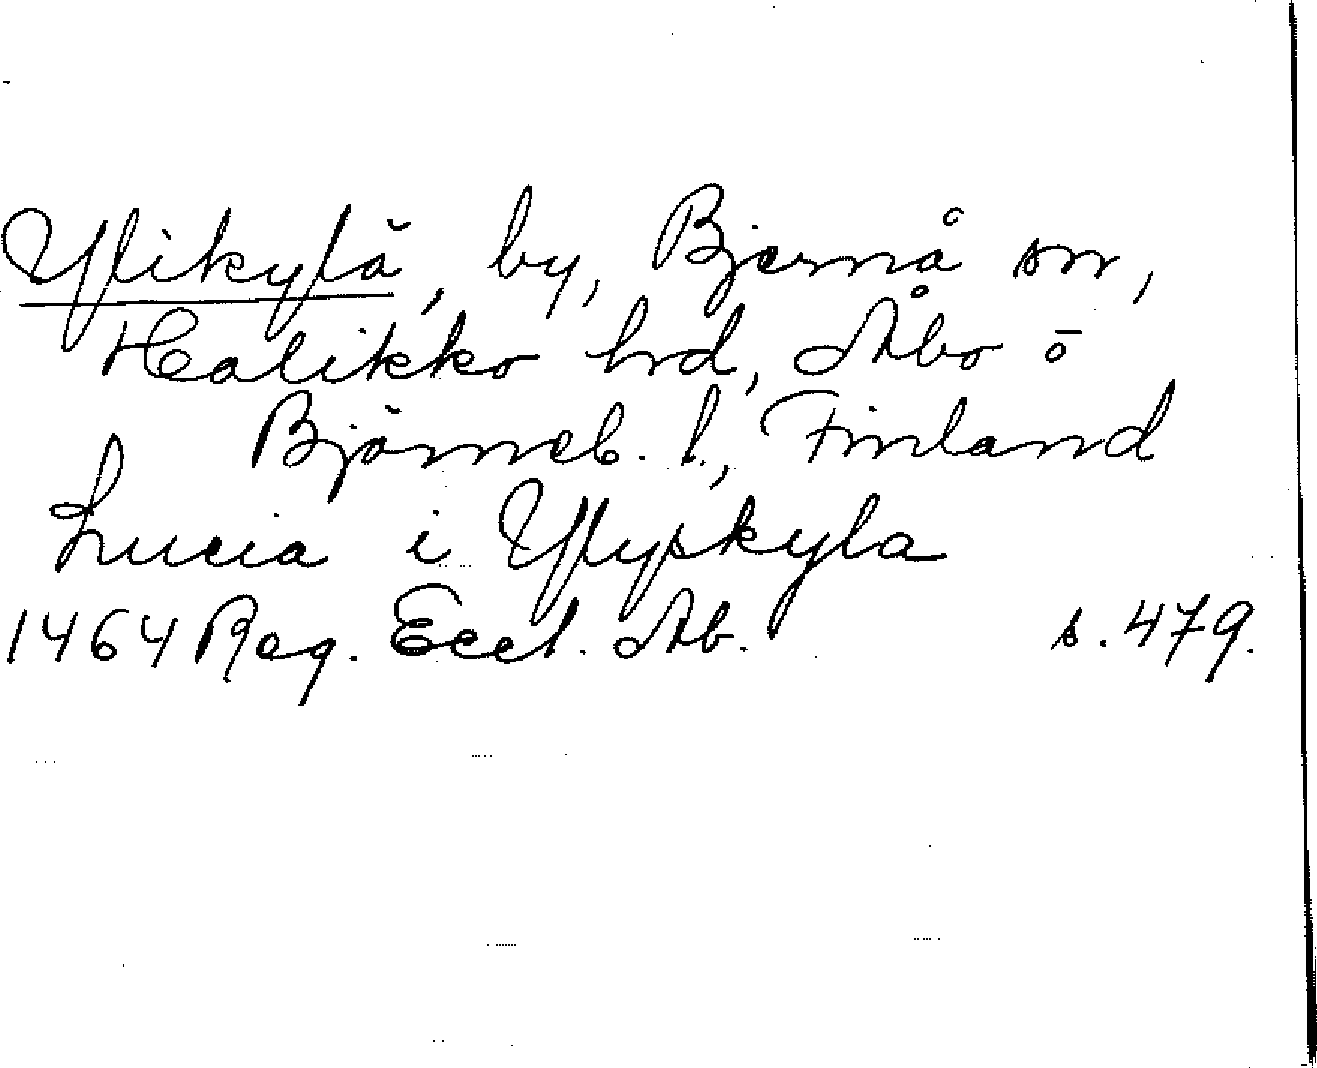 Ylikylä, by, Bjernå sn,
Halikko hrd, Åbo ō
Björneb. l., Finland
Lucia i Ylyskyla
1464 Reg. Eccl. Ab. s. 479.